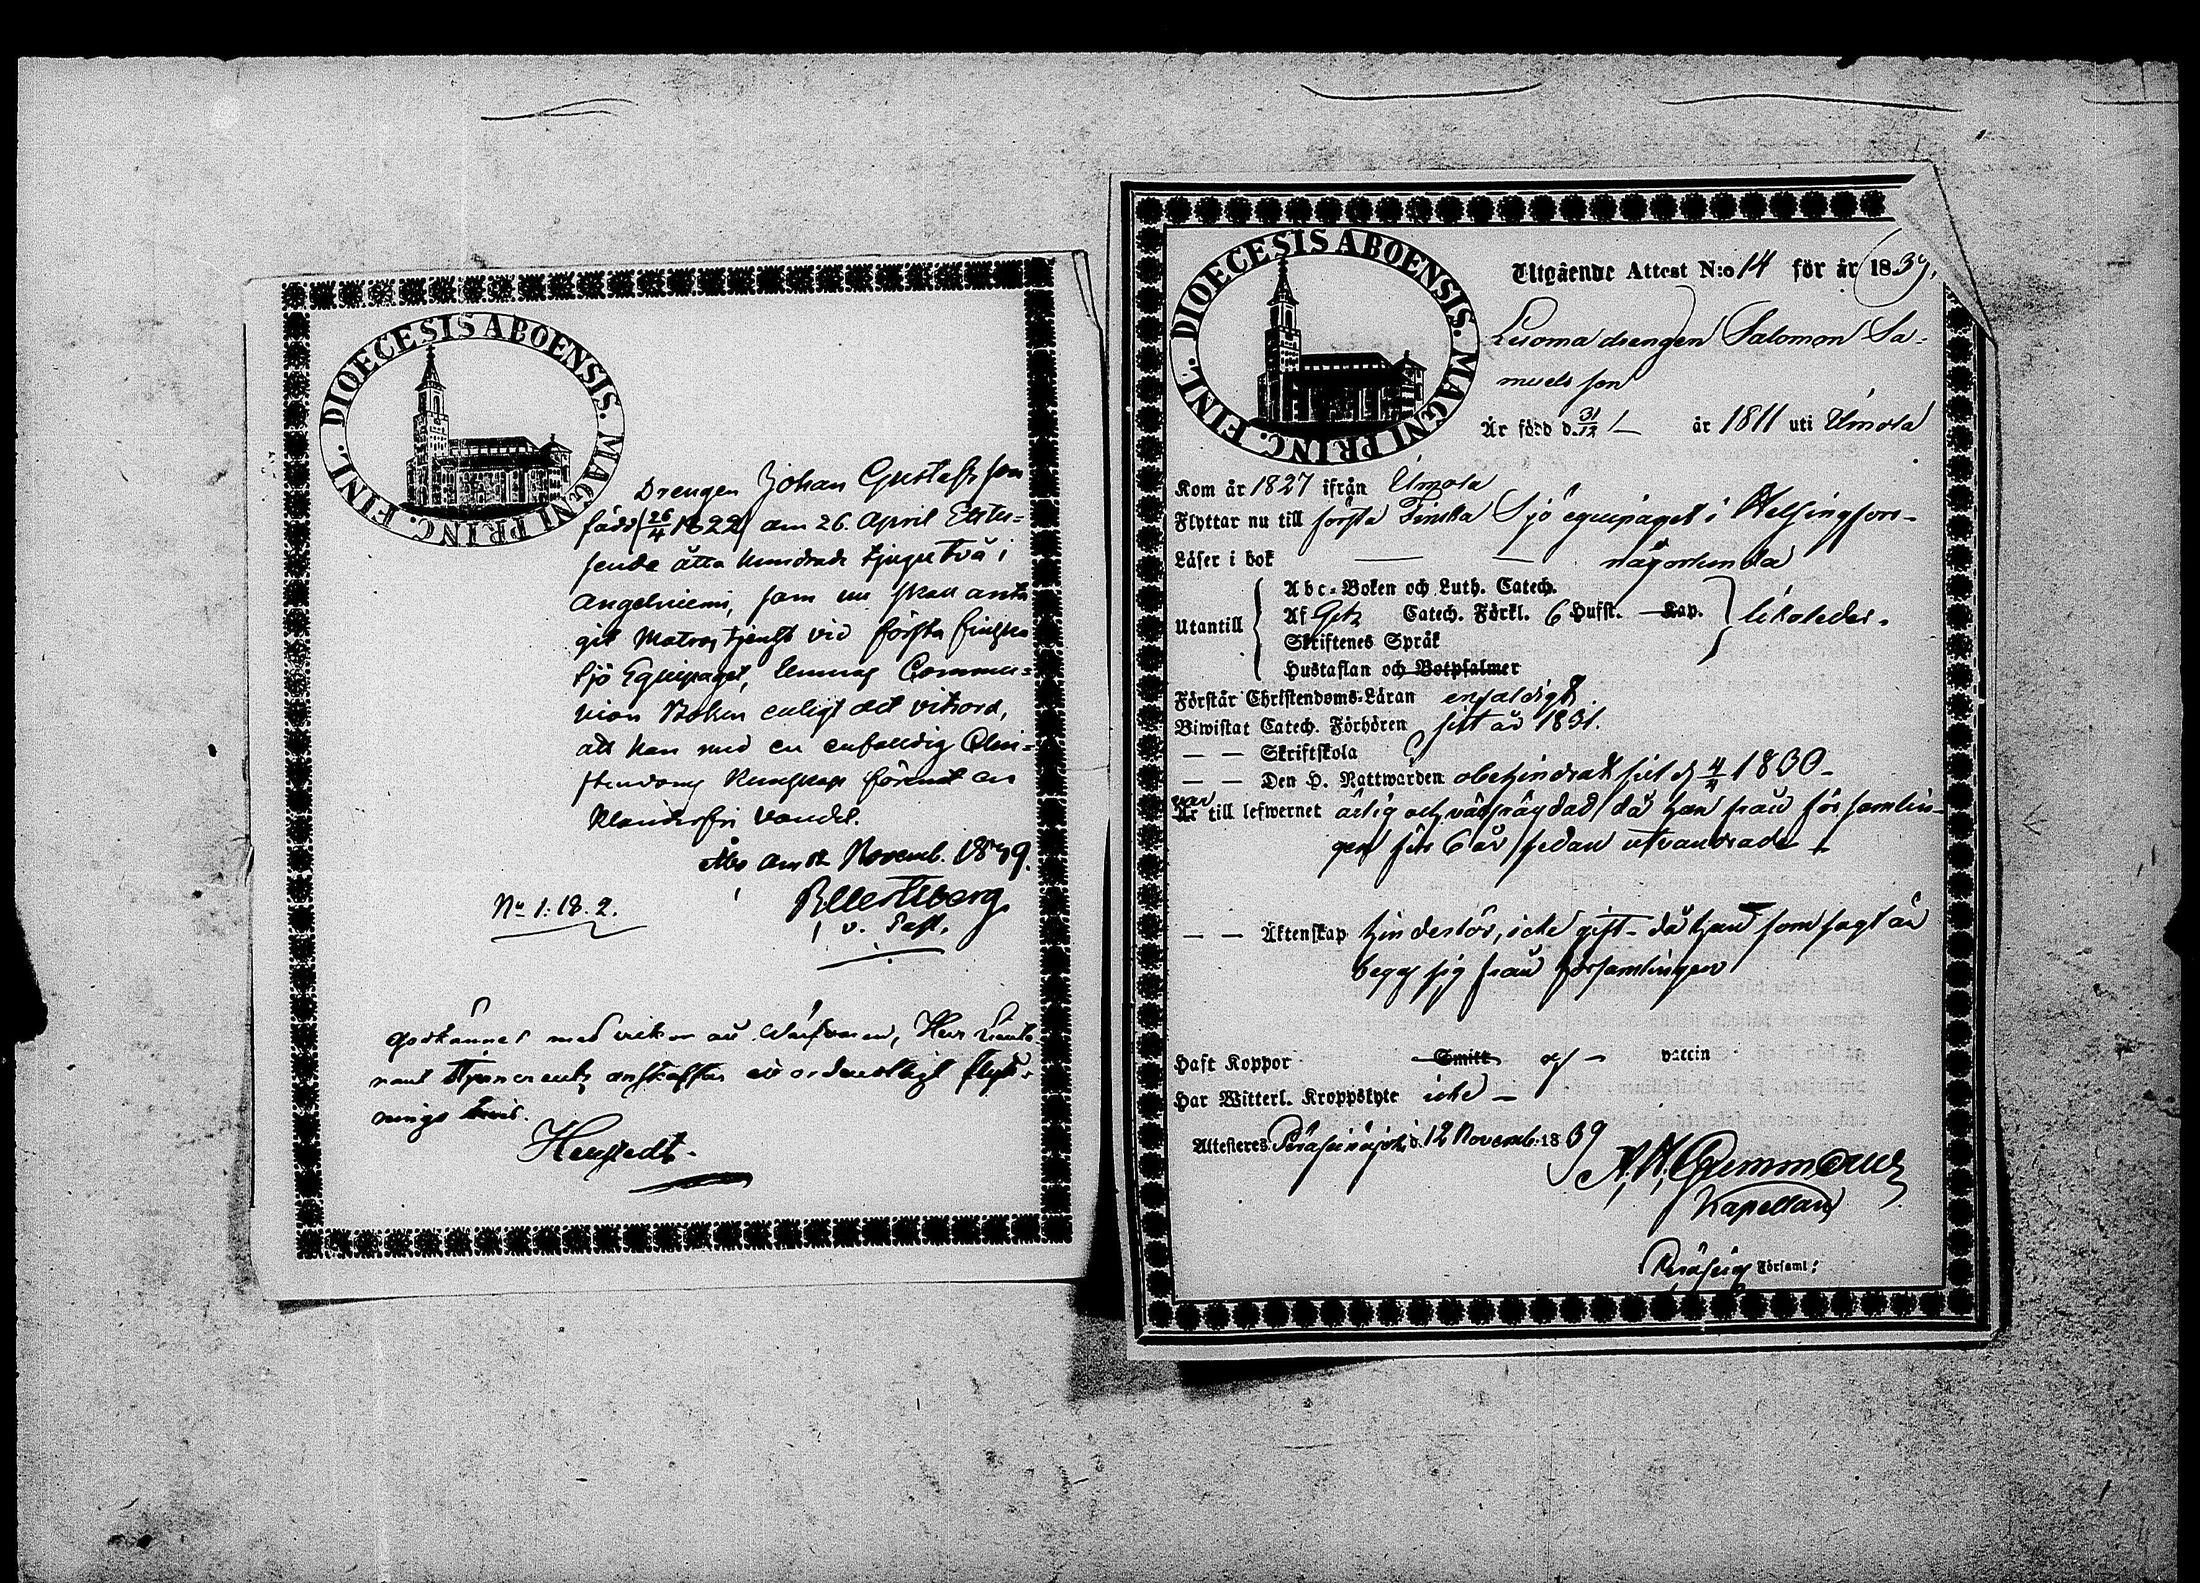 DIOECESIS ABOENSIS. MAGNI PRINC. FINL.
Drengen Johan Gustafs son
född (26/4 1822) am 26. April Ettu=
sende åtta hundrade tjugu två i
Angelniemi, som nu skall anta
git Matros tjenst vid första finska
Sjö Equipaget, Commu=
nion Boken enligt det vitsord,
att han med en enfalldig Chri=
stendoms Kunskap förent en
klanderfri vandel.
Åbo am 12 Novemb. 1839.
No 1. 18. 2.
v. Past.
Godkännes med vilkor au Wärfvaren, Herr Lieute=
nant anskaffar ett ordentligt flytt=
nings bevis.
DIOECESIS ABOENSIS. MAGNI PRINC. FINL.
Utgående Attest N:o 14 för år 1839.
drengen Salomon Sa=
muels son
Är född d. 31/12 år 1811 uti Ilmola
Kom år 1827 ifrån Ilmola
Flyttar nu till första Finska Sjö equipaget i Helsingfors
Läser i bok — — någorlunda
Abc=Boken och Luth. Catech.
Utantill Af Getz Catech. Förkl. 6 Hufst. Kap. likaledes.
Skriftenes Språk
Hustaflan och Botpsalmer
Förstår Christendoms=Läran enfaldigt
Biwistat Catech. Förhören sist år 1831.
— — Skriftskola
— — Den H. Nattwarden obehindradt sist d 4/4 1830 –
var
Är till lefwernet ärlig och välfrägdad då han från församlin=
gen för 6 år sedan utvandrade
— — Äktenskap hinderlös, icke gift – då han som sagt är
begaf sig från församlingen
Haft Koppor Smitt af – vaccin
Har Witterl. Kroppslyte icke –
Attesteres Peräseinäjoki d. 12 Novemb: 1839
Kapellan
Församl: